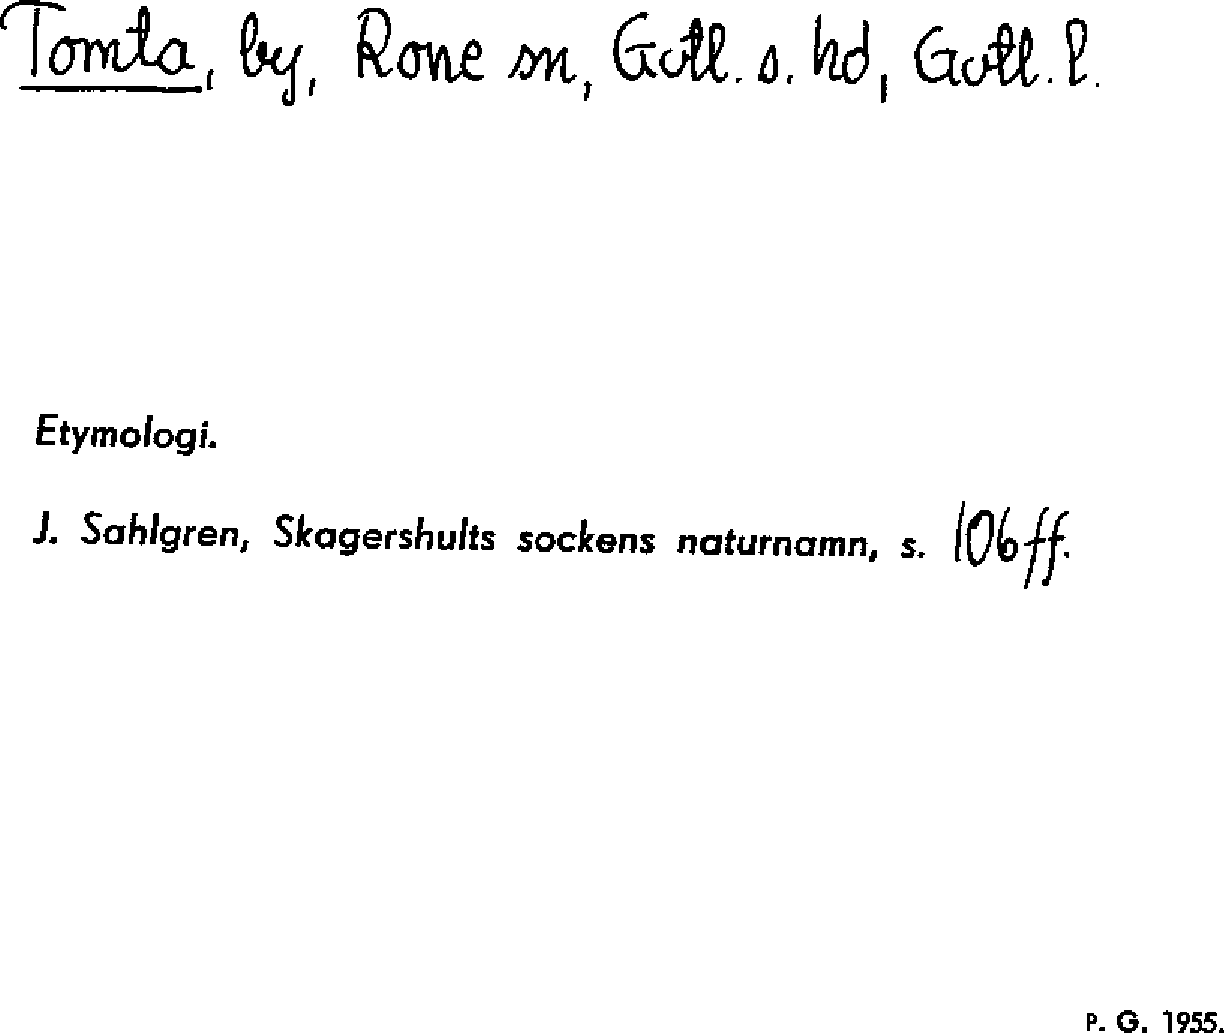 Tomta, by, Rone sn, Gotl. s. hd, Gotl. l.
Etymologi.
J. Sahlgren, Skagershults sockens naturnamn, s. 106 ff.
P. G. 1955.